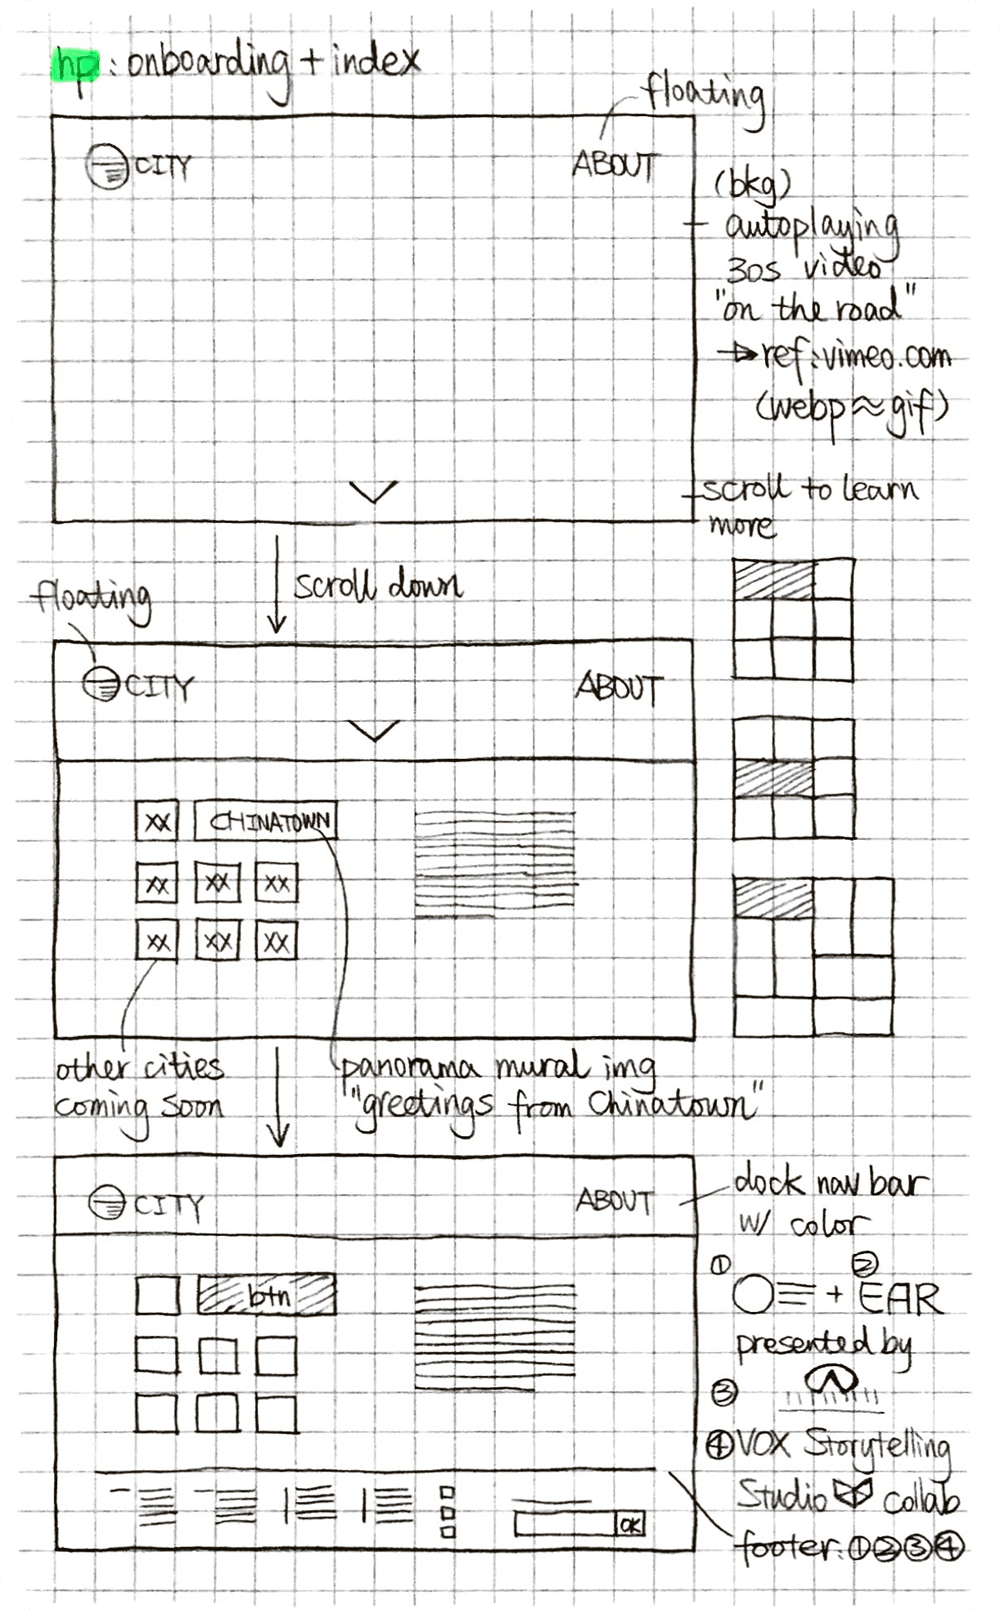 hp: onboarding + index
floating
CITY
ABOUT
(bkg)
autoplaying
30s video
"on the road"
→ ref: vimeo.com
(webp ≈ gif)
scroll to learn
more
scroll down
floating
CITY
ABOUT
XX
CHINATOWN
XX XX XX
XX XX XX
other cities
coming soon
panorama mural img
"greetings from Chinatown"
CITY
ABOUT
dock nav bar
w/ color
btn
① ②
+ EAR
presented by
③
④ VOX Storytelling
Studio collab
OK
footer: ①②③④